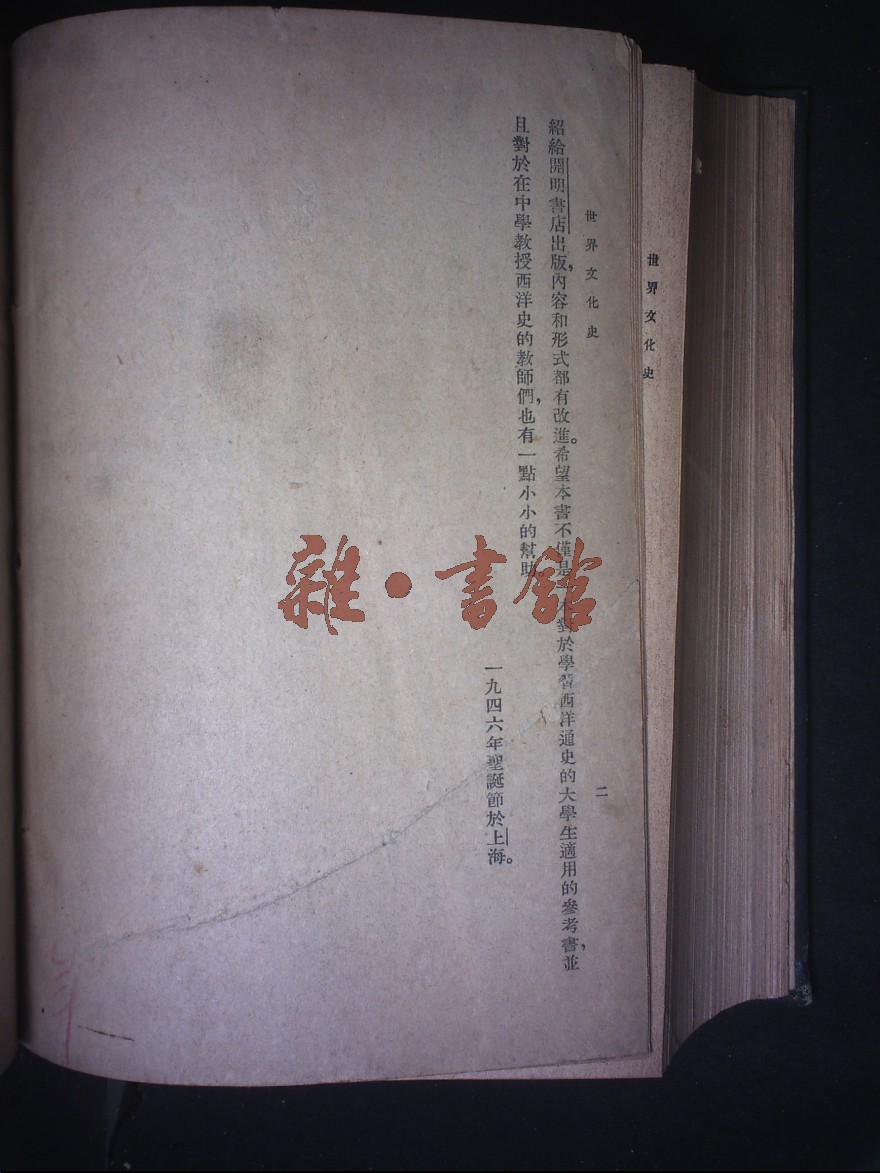 世界文化史
世界文化史
二
紹給開明書店出版，內容和形式都有改進。希望本書不僅是 本對於學習西洋通史的大學生適用的參考書，並
且對於在中學教授西洋史的教師們，也有一點小小的幫助。
一九四六年聖誕節於上海。
雜·書館